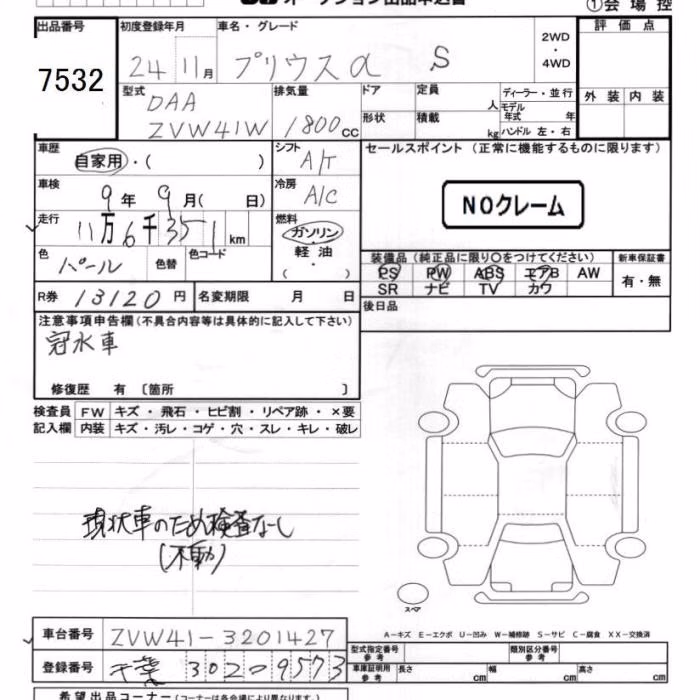 ①会場控
出品番号 初度登録年月 車名・グレード 2WD・4WD 評価点
7532 24 11月 プリウスα S
型式 DAA ZVW41W 排気量 1800cc ドア 定員 人 ディーラー・並行 外装 内装
形状 積載 kg モデル年式 年 ハンドル 左・右
車歴 自家用・( ) シフト A/T セールスポイント (正常に機能するものに限ります)
車検 9年 9月( 日) 冷房 A/C NOクレーム
走行 11万6千351km 燃料 ガソリン・軽油・( )
色 パール 色替 色コード 装備品(純正品に限り○をつけてください) 新車保証書
PS PW ABS エアB AW 有・無
SR ナビ TV カワ
R券 13120円 名変期限 月 日 後日品
注意事項申告欄(不具合内容等は具体的に記入して下さい)
冠水車
修復歴 有 〔箇所 〕
検査員 FW キズ・飛石・ヒビ割・リペア跡・×要
記入欄 内装 キズ・汚レ・コゲ・穴・スレ・キレ・破レ
現状車のため検査なし
(不動)
スペア
A−キズ E−エクボ U−凹み W−補修跡 S−サビ C−腐食 XX−交換済
車台番号 ZVW41-3201427 型式指定番号 参考 類別区分番号 参考
登録番号 千葉 302 9573 車庫証明用 参考 長さ cm 幅 cm 高さ cm
希望出品コーナー(コーナーは各会場により異なります。)